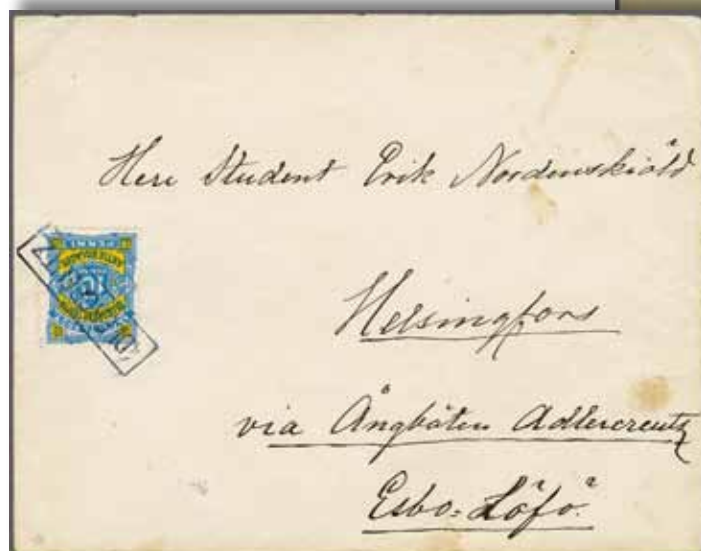 Herr Student Erik Nordenskiöld
Helsingfors
via Ångbåten Adlercreutz
Esbo=Löfö.
PENNI
10